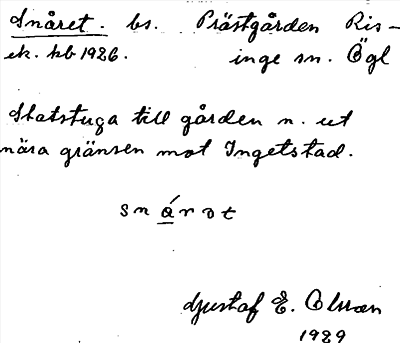 Snåret. bs. Prästgården Ris-
ek. hb 1926. inge sn. Ögl
Statstuga till gården n. ut
nära gränsen mot Ingetstad.
snárot
Gustaf E. Olsson
1929